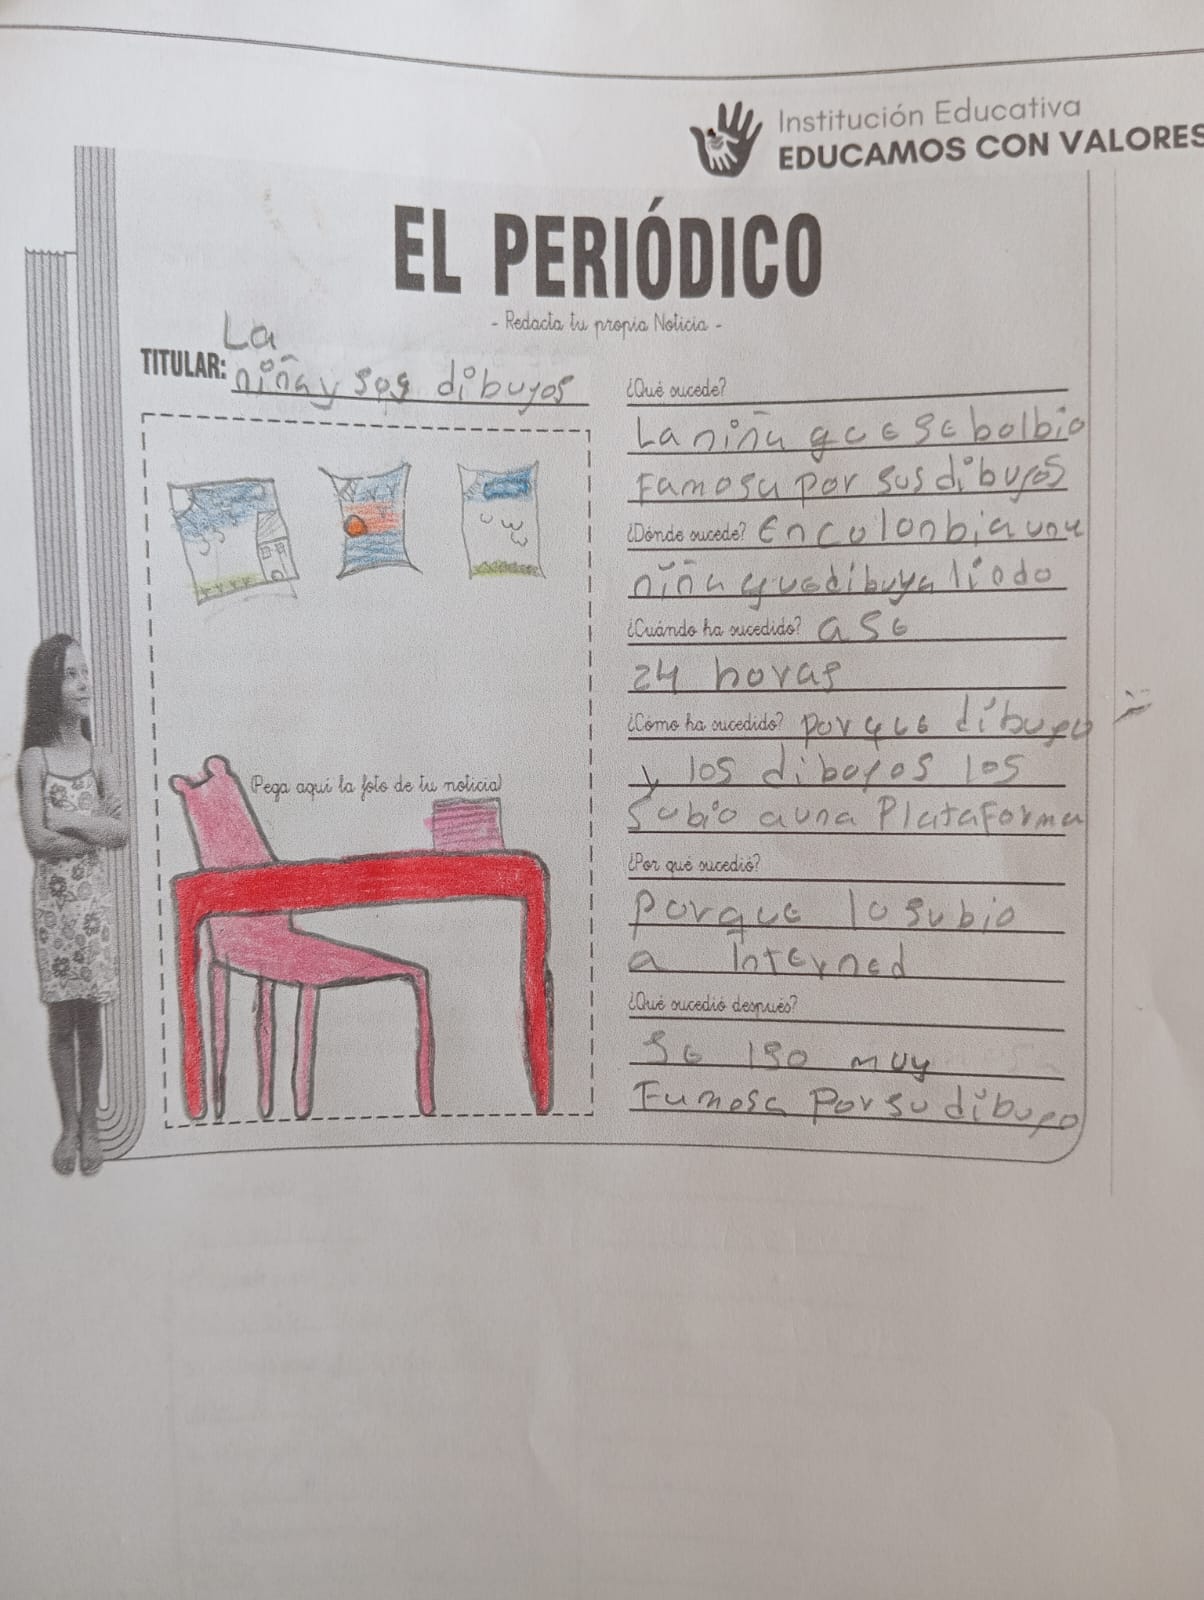 Institución Educativa
EDUCAMOS CON VALORES
EL PERIÓDICO
- Redacta tu propia Noticia -
La
TITULAR: niña y sos dibuyos
(Pega aquí la foto de tu noticia)
¿Qué sucede?
La niña que se bolbio
Famosa por sus dibuyos
¿Dónde sucede? En colonbia una
niña que dibuya liodo
¿Cuándo ha sucedido? a se
24 horas
¿Cómo ha sucedido? porque dibuyo
y los diboyos los
subio a una Plataforma
¿Por qué sucedió?
Porque lo subio
a Interned
¿Qué sucedió después?
se iso muy
Fumosa Por su dibuyo